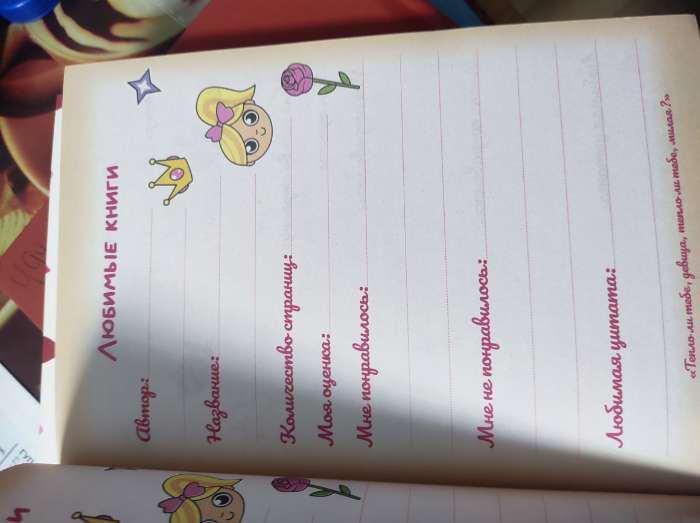 Любимые книги
Автор:
Название:
Количество страниц:
Моя оценка:
Мне понравилось:
Мне не понравилось:
Любимая цитата:
«Тепло ли тебе, девица, тепло ли тебе, милая?»